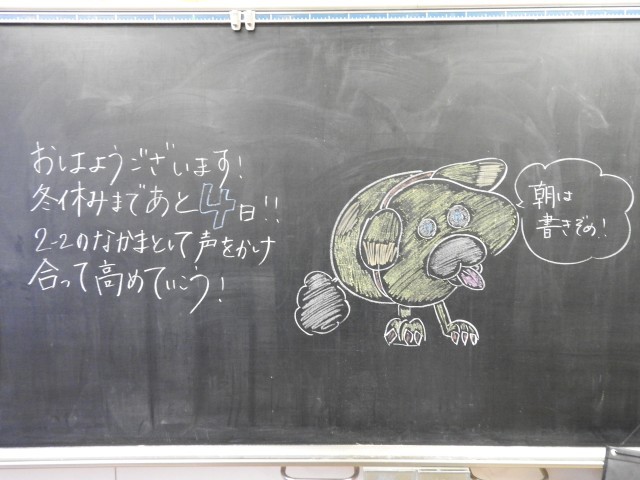 おはようございます!
冬休みまであと4日!!
2-2のなかまとして声をかけ
合って高めていこう!
朝は
書きぞめ!!